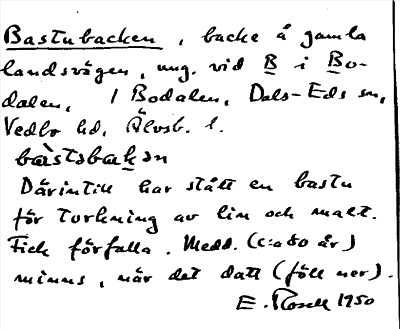 Bastubacken, backe å gamla
landsvägen, ung. vid B i Bo-
dalen, / Bodalen, Dals-Eds sn,
Vedbo hd, Älvsb. l.
bàstobakən
Därintill har stått en bastu
för torkning av lin och malt.
Fick förfalla. Medd. (c:a 80 år)
minns, när det datt (föll ner).
E. Rosell 1950